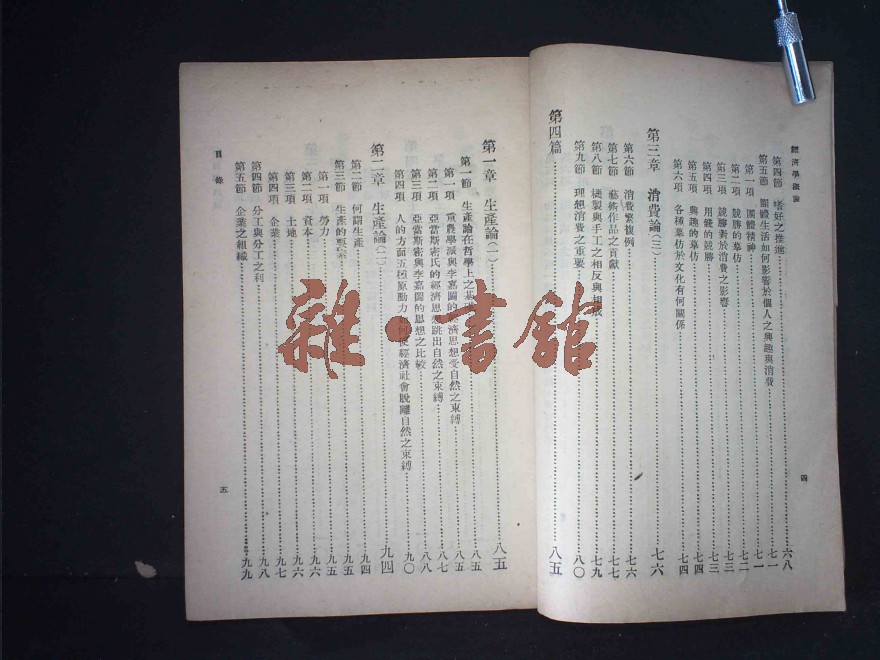 經濟學概論
第四節 嗜好之推進 六八
第五節 團體生活如何影響於個人之興趣與消費 七一
第一項 團體精神 七一
第二項 競勝的摹仿 七二
第三項 競勝對於消費之影響 七三
第四項 用錢的競勝 七三
第五項 興趣的摹仿 七四
第六項 各種摹仿於文化有何關係 七四
第三章 消費論(三) 七六
第六節 消費繁複例 七六
第七節 藝術作品之貢獻 七七
第八節 機製與手工之相反與相成 七九
第九節 理想消費之重要 八〇
第四篇 八五
四
第一章 生產論(一) 八五
第一節 生產論在哲學上之基 八五
第一項 重農學派與李嘉圖的經濟思想受自然之束縛 八五
第二項 亞當斯密氏的經濟思想跳出自然之束縛 八七
第三項 亞當斯密與李嘉圖的思想之比較 八八
第四項 人的方面五種原動力如何使經濟社會脫離自然之束縛 九〇
第二章 生產論(二) 九四
第二節 何謂生產 九四
第三節 生產的要素 九五
第一項 勞力 九五
第二項 資本 九六
第三項 土地 九六
第四項 企業 九七
第四節 分工與分工之利 九八
第五節 企業之組織 九九
目錄
五
雜·書館